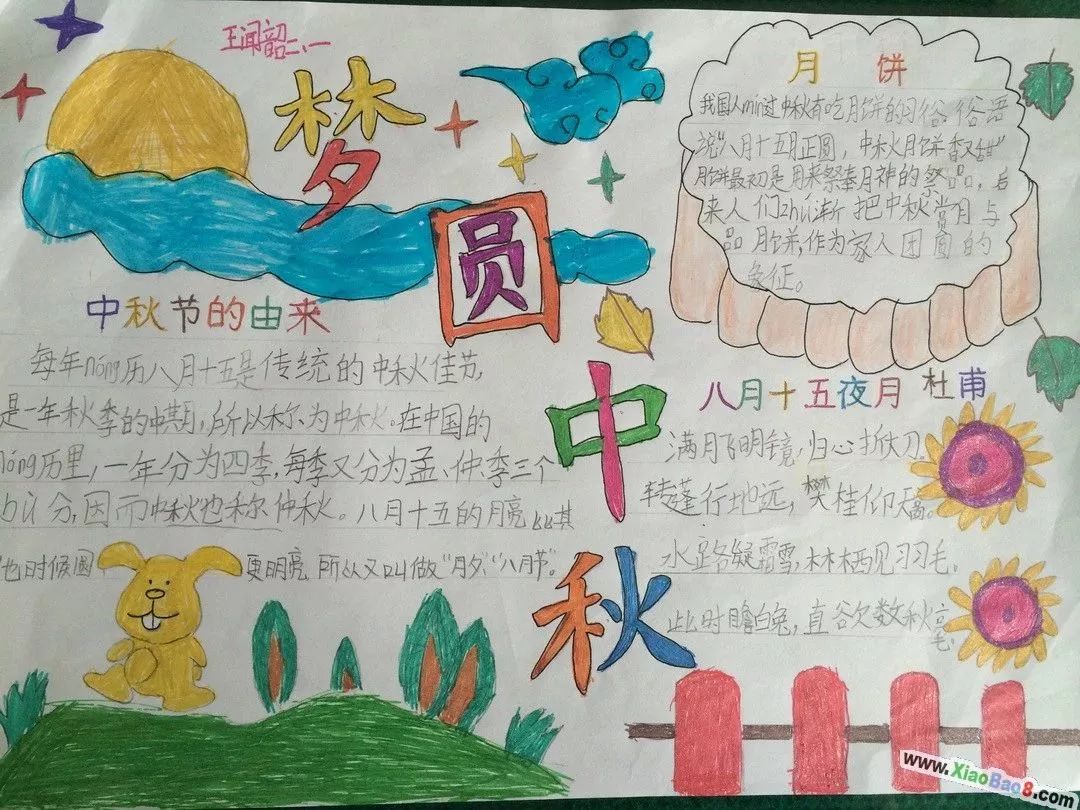 王闻韶二、一
梦圆中秋
月饼
我国人mín过中秋有吃月饼的习俗 俗语
说“八月十五月正圆，中秋月饼香又甜”
月饼最初是用来祭奉月神的祭品，后
来人们zhú渐把中秋赏月与
品月饼，作为家人团圆的
象征。
中秋节的由来
每年nóng历八月十五是传统的中秋佳节，
是一年秋季的中期，所以称为中秋。在中国的
nóng历里，一年分为四季，每季又分为孟、仲、季三个
bù分，因而中秋也称仲秋。八月十五的月亮比其
他时候圆 更明亮 所以又叫做“月夕”“八月节”。
八月十五夜月 杜甫
满月飞明镜，归心折大刀。
转蓬行地远，攀桂仰天高。
水路疑霜雪，林栖见羽毛。
此时瞻白兔，直欲数秋毫。
www.XiaoBao8.com